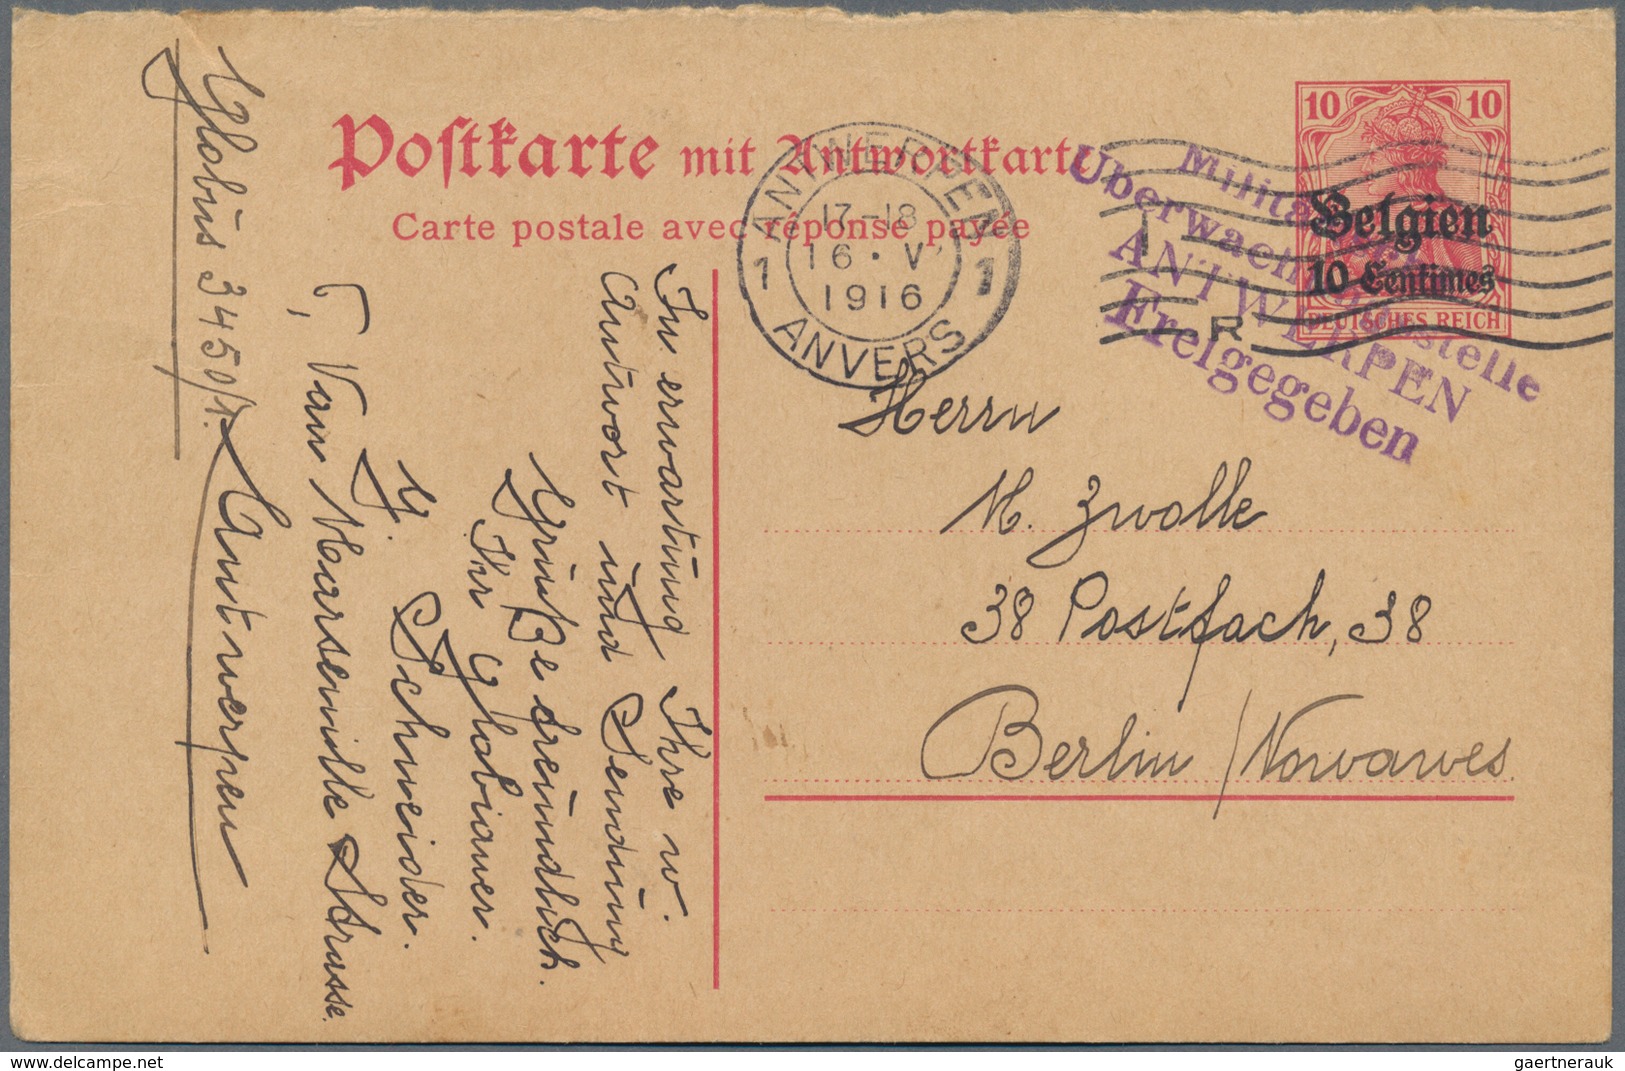 Postkarte mit Antwortkarte
Carte postale avec réponse payée
10 10
Belgien
10 Centimes
DEUTSCHES REICH
1 ANTWERPEN 1
17-18
16 · V
1916
ANVERS
R
Überwachungsstelle
ANTWERPEN
Freigegeben
Herrn
M. Zwolle
38 Postfach, 38
Berlin / Nowawes.
In erwartung Ihre w.
Antwort und Sendung
Grüße freundlich.
Ihr Globianer.
J. Schneider.
6, Van Marsenille Strasse.
Antwerpen
Globus 3450/1.
gaertnerauk